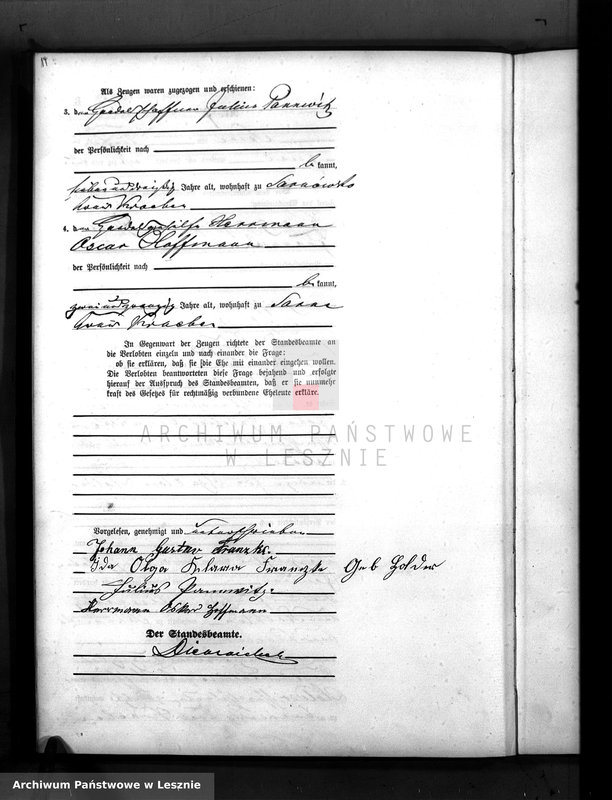 Als Zeugen waren zugezogen und erschienen:
3. der Julius Pannwitz
der Persönlichkeit nach
be kannt,
sieben und dreißig Jahre alt, wohnhaft zu Sarnowko
Kreis Kroeben
4. der Herrmann
Oscar Hoffmann
der Persönlichkeit nach
be kannt,
zwei und zwanzig Jahre alt, wohnhaft zu Sarne
Kreis Kroeben
In Gegenwart der Zeugen richtete der Standesbeamte an
die Verlobten einzeln und nach einander die Frage:
ob sie erklären, daß sie die Ehe mit einander eingehen wollen.
Die Verlobten beantworteten diese Frage bejahend und erfolgte
hierauf der Ausspruch des Standesbeamten, daß er sie nunmehr
kraft des Gesetzes für rechtmäßig verbundene Eheleute erkläre.
ARCHIWUM PAŃSTWOWE
W LESZNIE
Vorgelesen, genehmigt und unterschrieben
Johann Gustav Franzke.
Ida Olga Klara Franzke Geb Holder
Julius Pannwitz.
Herrmann Oskar Hoffmann
Der Standesbeamte.
Archiwum Państwowe w Lesznie